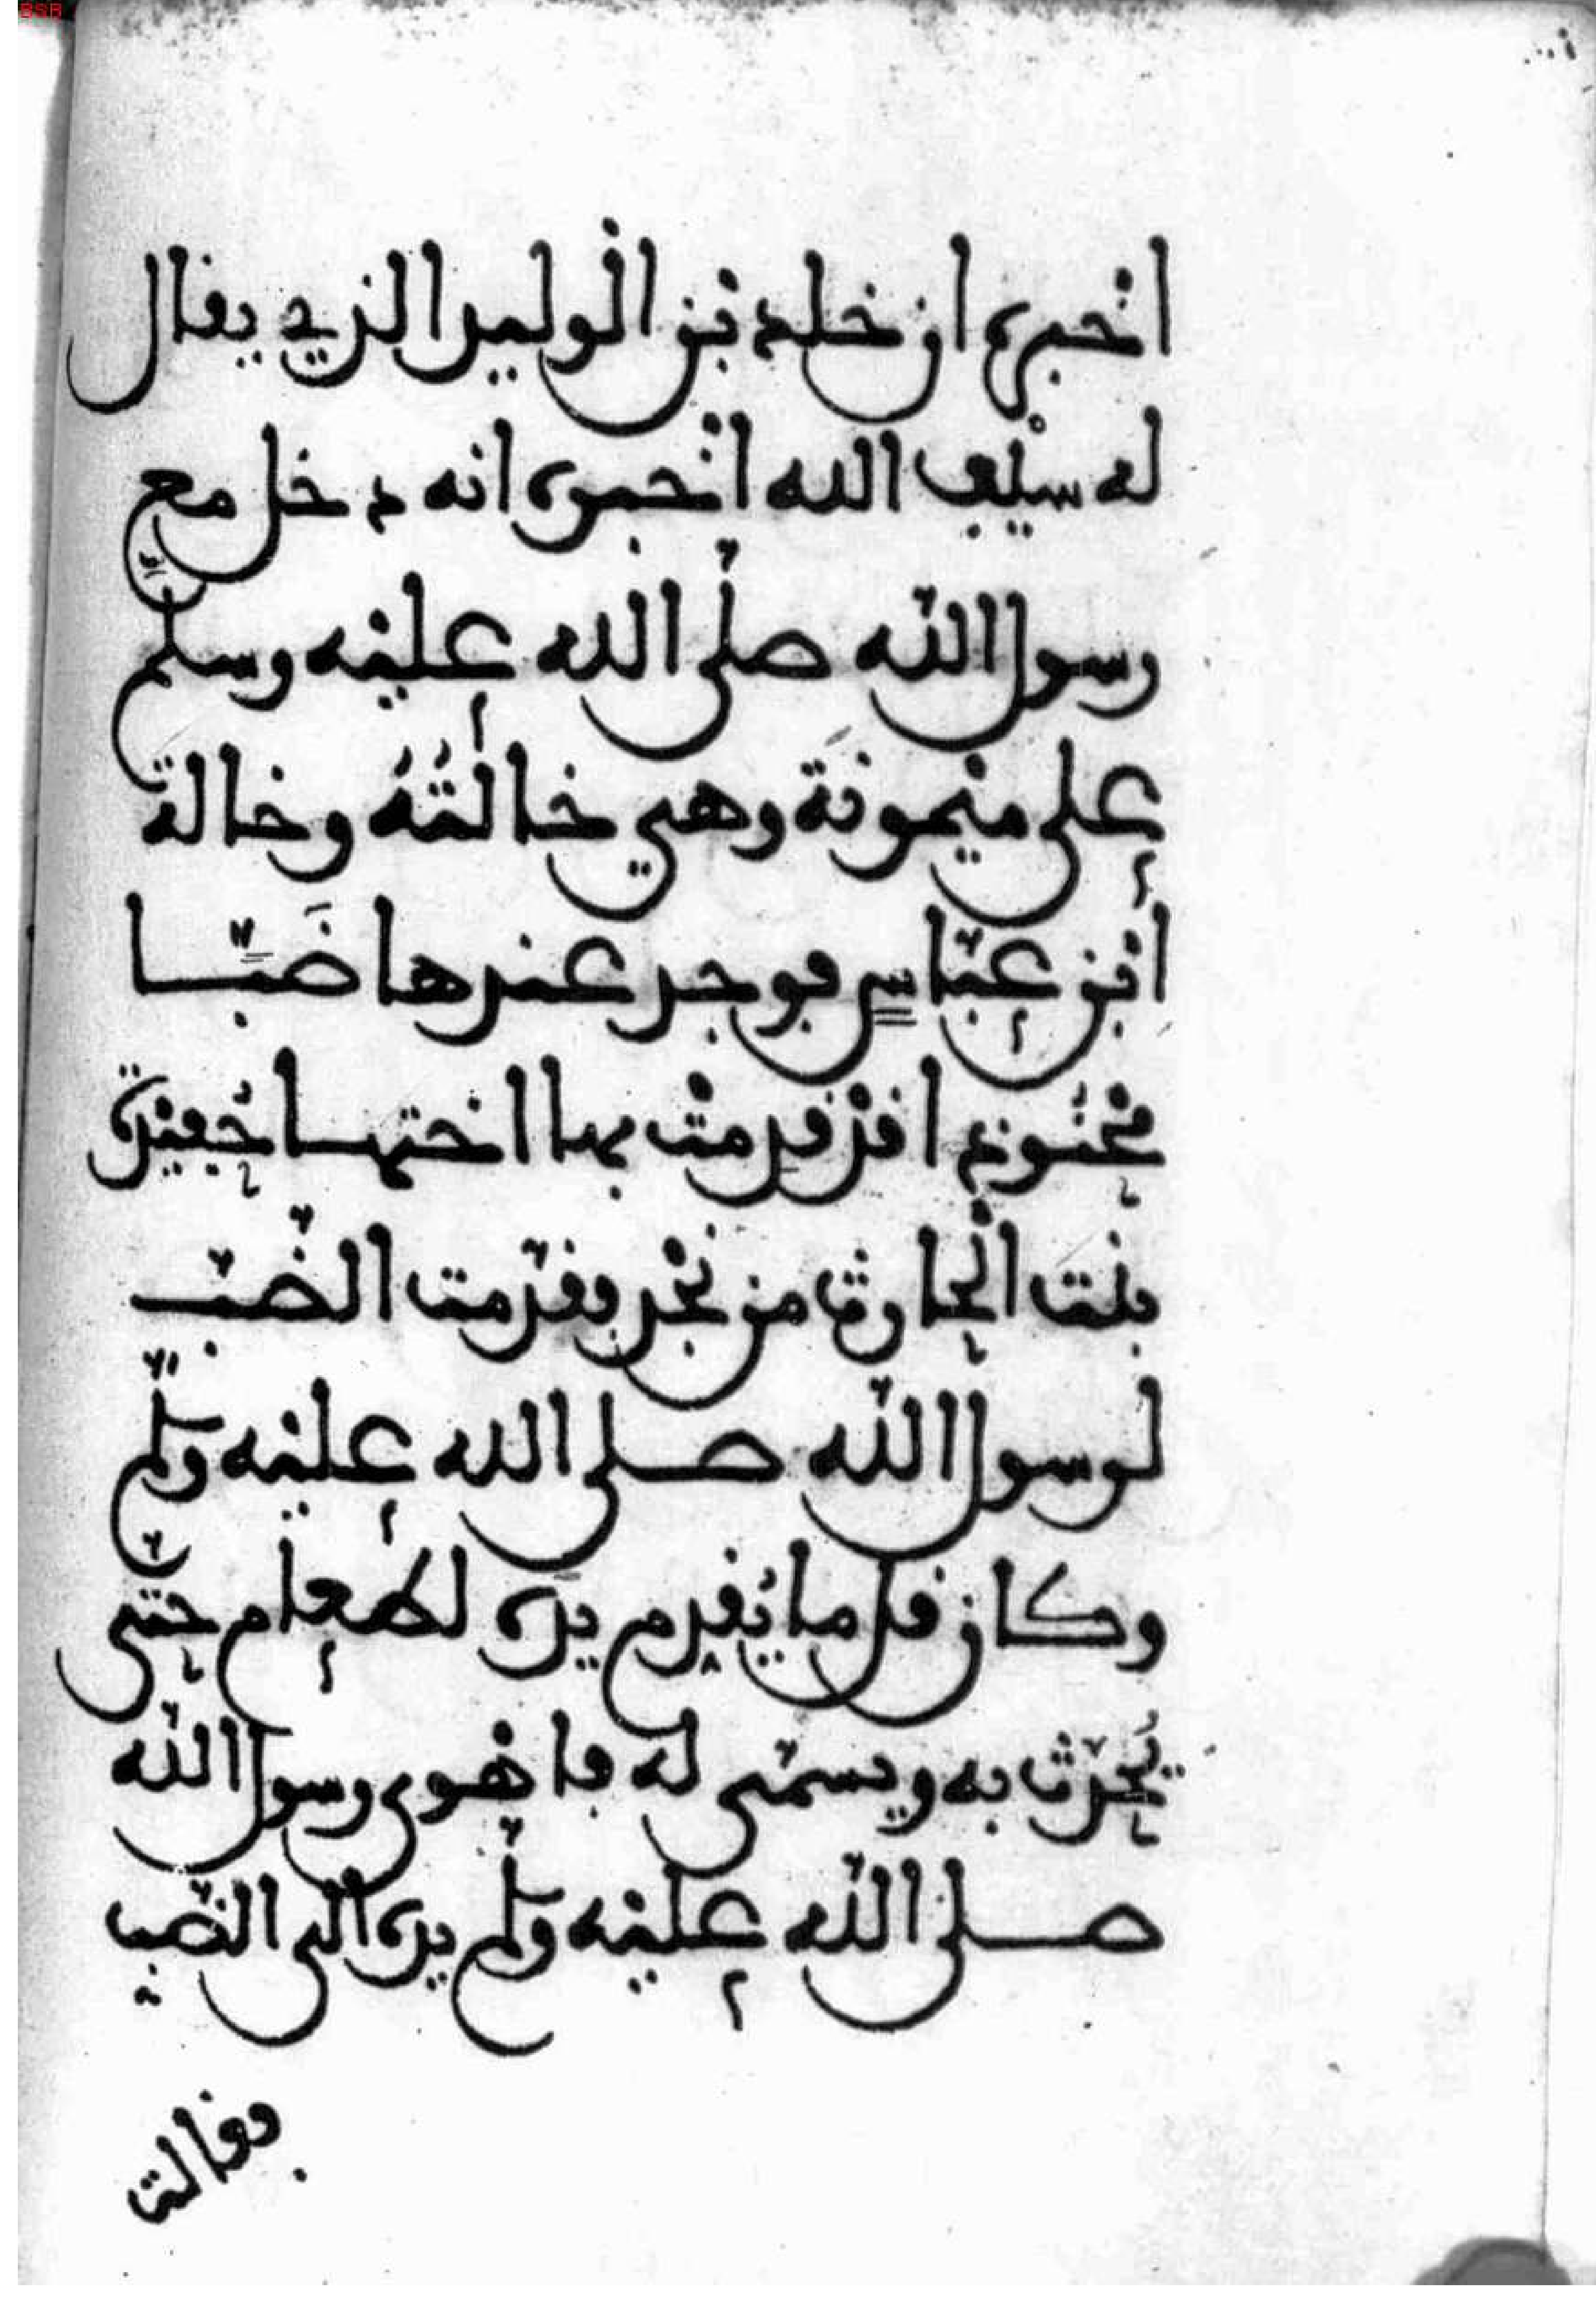 BSB
اخبره ان خلد بن الوليد الذي يقال
له سيف الله اخبره انه دخل مع
رسول الله صلى الله عليه وسلم
على ميمونة وهي خالته وخالة
ابن عباس فوجد عندها ضبا
محنوذا قد قدمت بها اختها حفيدة
بنت الحارث من نجد فقدمت الضب
لرسول الله صلى الله عليه وسلم
وكان قل ما يقدم يده لطعام حتى
يحدث به ويسمى له فاهوى رسول الله
صلى الله عليه وسلم يده الى الضب
فقالت